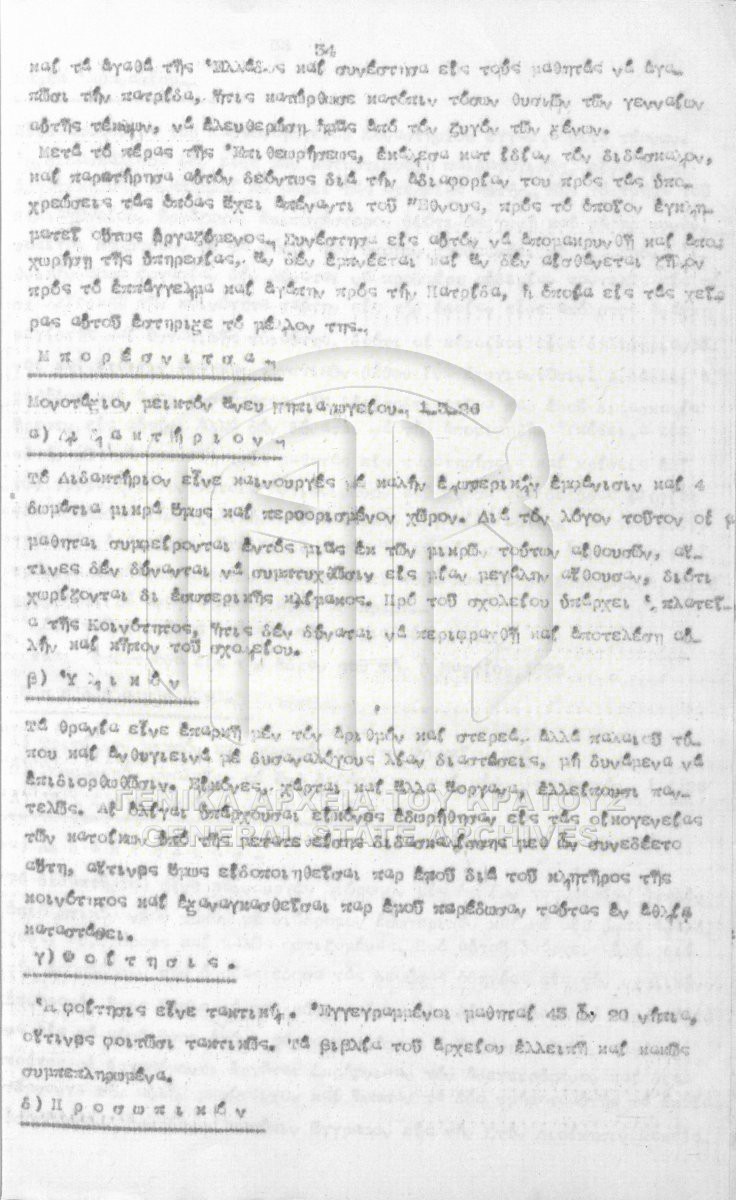 34
καί τά ἀγαθά τῆς Ἑλλάδος καί συνέστησα εἰς τούς μαθητάς νά ἀγα-
πῶσι τήν πατρίδα, ἥτις κατώρθωσε κατόπιν τόσων θυσιῶν τῶν γενναίων
αὐτῆς τέκνων, νά ἐλευθερώσῃ ἡμᾶς ἀπό τόν ζυγόν τῶν ξένων.
Μετά τό πέρας τῆς Ἐπιθεωρήσεως, ἐκάλεσα κατ ἰδίαν τόν διδάσκαλον,
καί παρατήρησα αὐτόν δεόντως διά τήν ἀδιαφορίαν του πρός τάς ὑπο-
χρεώσεις τάς ὁποίας ἔχει ἀπέναντι τοῦ Ἔθνους, πρός τό ὁποῖον ἐγκλη-
ματεῖ οὕτως ἐργαζόμενος. Συνέστησα εἰς αὐτόν νά ἀπομακρυνθῇ καί ἀπο-
χωρήσῃ τῆς ὑπηρεσίας, ἄν δέν ἐμπνέεται καί ἄν δέν αἰσθάνεται ζῆλον
πρός τό ἐπάγγελμα καί ἀγάπην πρός τήν Πατρίδα, ἡ ὁποία εἰς τάς χεῖ-
ρας αὐτοῦ ἐστήριξε τό μέλλον της.
Μπορέσνιτσα.
Μονοτάξιον μεικτόν ἄνευ νηπιαγωγείου. 1.5.36
α) Διδακτήριον.
Τό Διδακτήριον εἶνε καινουργές μέ καλήν ἐξωτερικήν ἐμφάνισιν καί 4
δωμάτια μικρά ὅμως καί περιορισμένον χῶρον. Διά τόν λόγον τοῦτον οἱ
μαθηταί συμφείρονται ἐντός μιᾶς ἐκ τῶν μικρῶν τούτων αἰθουσῶν, αἵ-
τινες δέν δύνανται νά συμπτυχθῶσιν εἰς μίαν μεγάλην αἴθουσαν, διότι
χωρίζονται δι ἐσωτερικῆς κλίμακος. Πρό τοῦ σχολείου ὑπάρχει ἡ πλατεῖ-
α τῆς Κοινότητος, ἥτις δέν δύναται νά περιφραχθῇ καί ἀποτελέσῃ αὐ-
λήν καί κῆπον τοῦ σχολείου.
β) Ὑλικόν
Τά θρανία εἶνε ἐπαρκῆ μέν τόν ἀριθμόν καί στερεά, ἀλλά παλαιοῦ τύ-
που καί ἀνθυγιεινά μέ δυσαναλόγους λίαν διαστάσεις, μή δυνάμενα νά
ἐπιδιορθωθῶσιν. Εἰκόνες, χάρται καί ἄλλα ὄργανα, ἐλλείπουσι παν-
τελῶς. Αἱ ὀλίγαι ὑπάρχουσαι εἰκόνες ἐδωρήθησαν εἰς τάς οἰκογενείας
τῶν κατοίκων ὑπό τῆς μετατεθείσης διδασκαλίσσης μεθ ὧν συνεδέετο
αὕτη, αἵτινες ὅμως εἰδοποιηθεῖσαι παρ ἐμοῦ διά τοῦ κλητῆρος τῆς
κοινότητος καί ἐξαναγκασθεῖσαι παρ ἐμοῦ παρέδωσαν ταύτας ἐν ἀθλίᾳ
καταστάσει.
γ) Φοίτησις.
Ἡ φοίτησις εἶνε τακτική. Ἐγγεγραμμένοι μαθηταί 43 ὧν 20 νήπια,
οἵτινες φοιτῶσι τακτικῶς. Τά βιβλία τοῦ ἀρχείου ἐλλειπῆ καί κακῶς
συμπεπληρωμένα.
δ) Προσωπικόν
ΓΕΝΙΚΑ ΑΡΧΕΙΑ ΤΟΥ ΚΡΑΤΟΥΣ
GENERAL STATE ARCHIVES